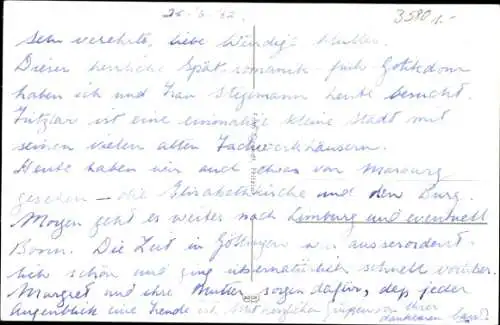 26.6.62.
3580 1.-
Sehr verehrte, liebe Mutter.
Dieser herrliche Spätromanik-früh Gotikdom
haben ich und Frau Stegemann heute besucht.
Fritzlar ist eine einmalige kleine Stadt mit
seinen vielen alten Fachwerkhäusern.
Heute haben wir auch etwas von Marburg
gesehen - die Elisabethkirche und den Burg.
Morgen geht es weiter nach Limburg und eventuell
Bonn. Die Zeit in Göttingen war ausserordent-
lich schön und ging übernatürlich schnell vorüber.
Margret und ihre Mutter sorgen dafür, dass jeder
Augenblick eine Freude ist. Mit herzlichen Grüssen von Ihrer
dankbaren